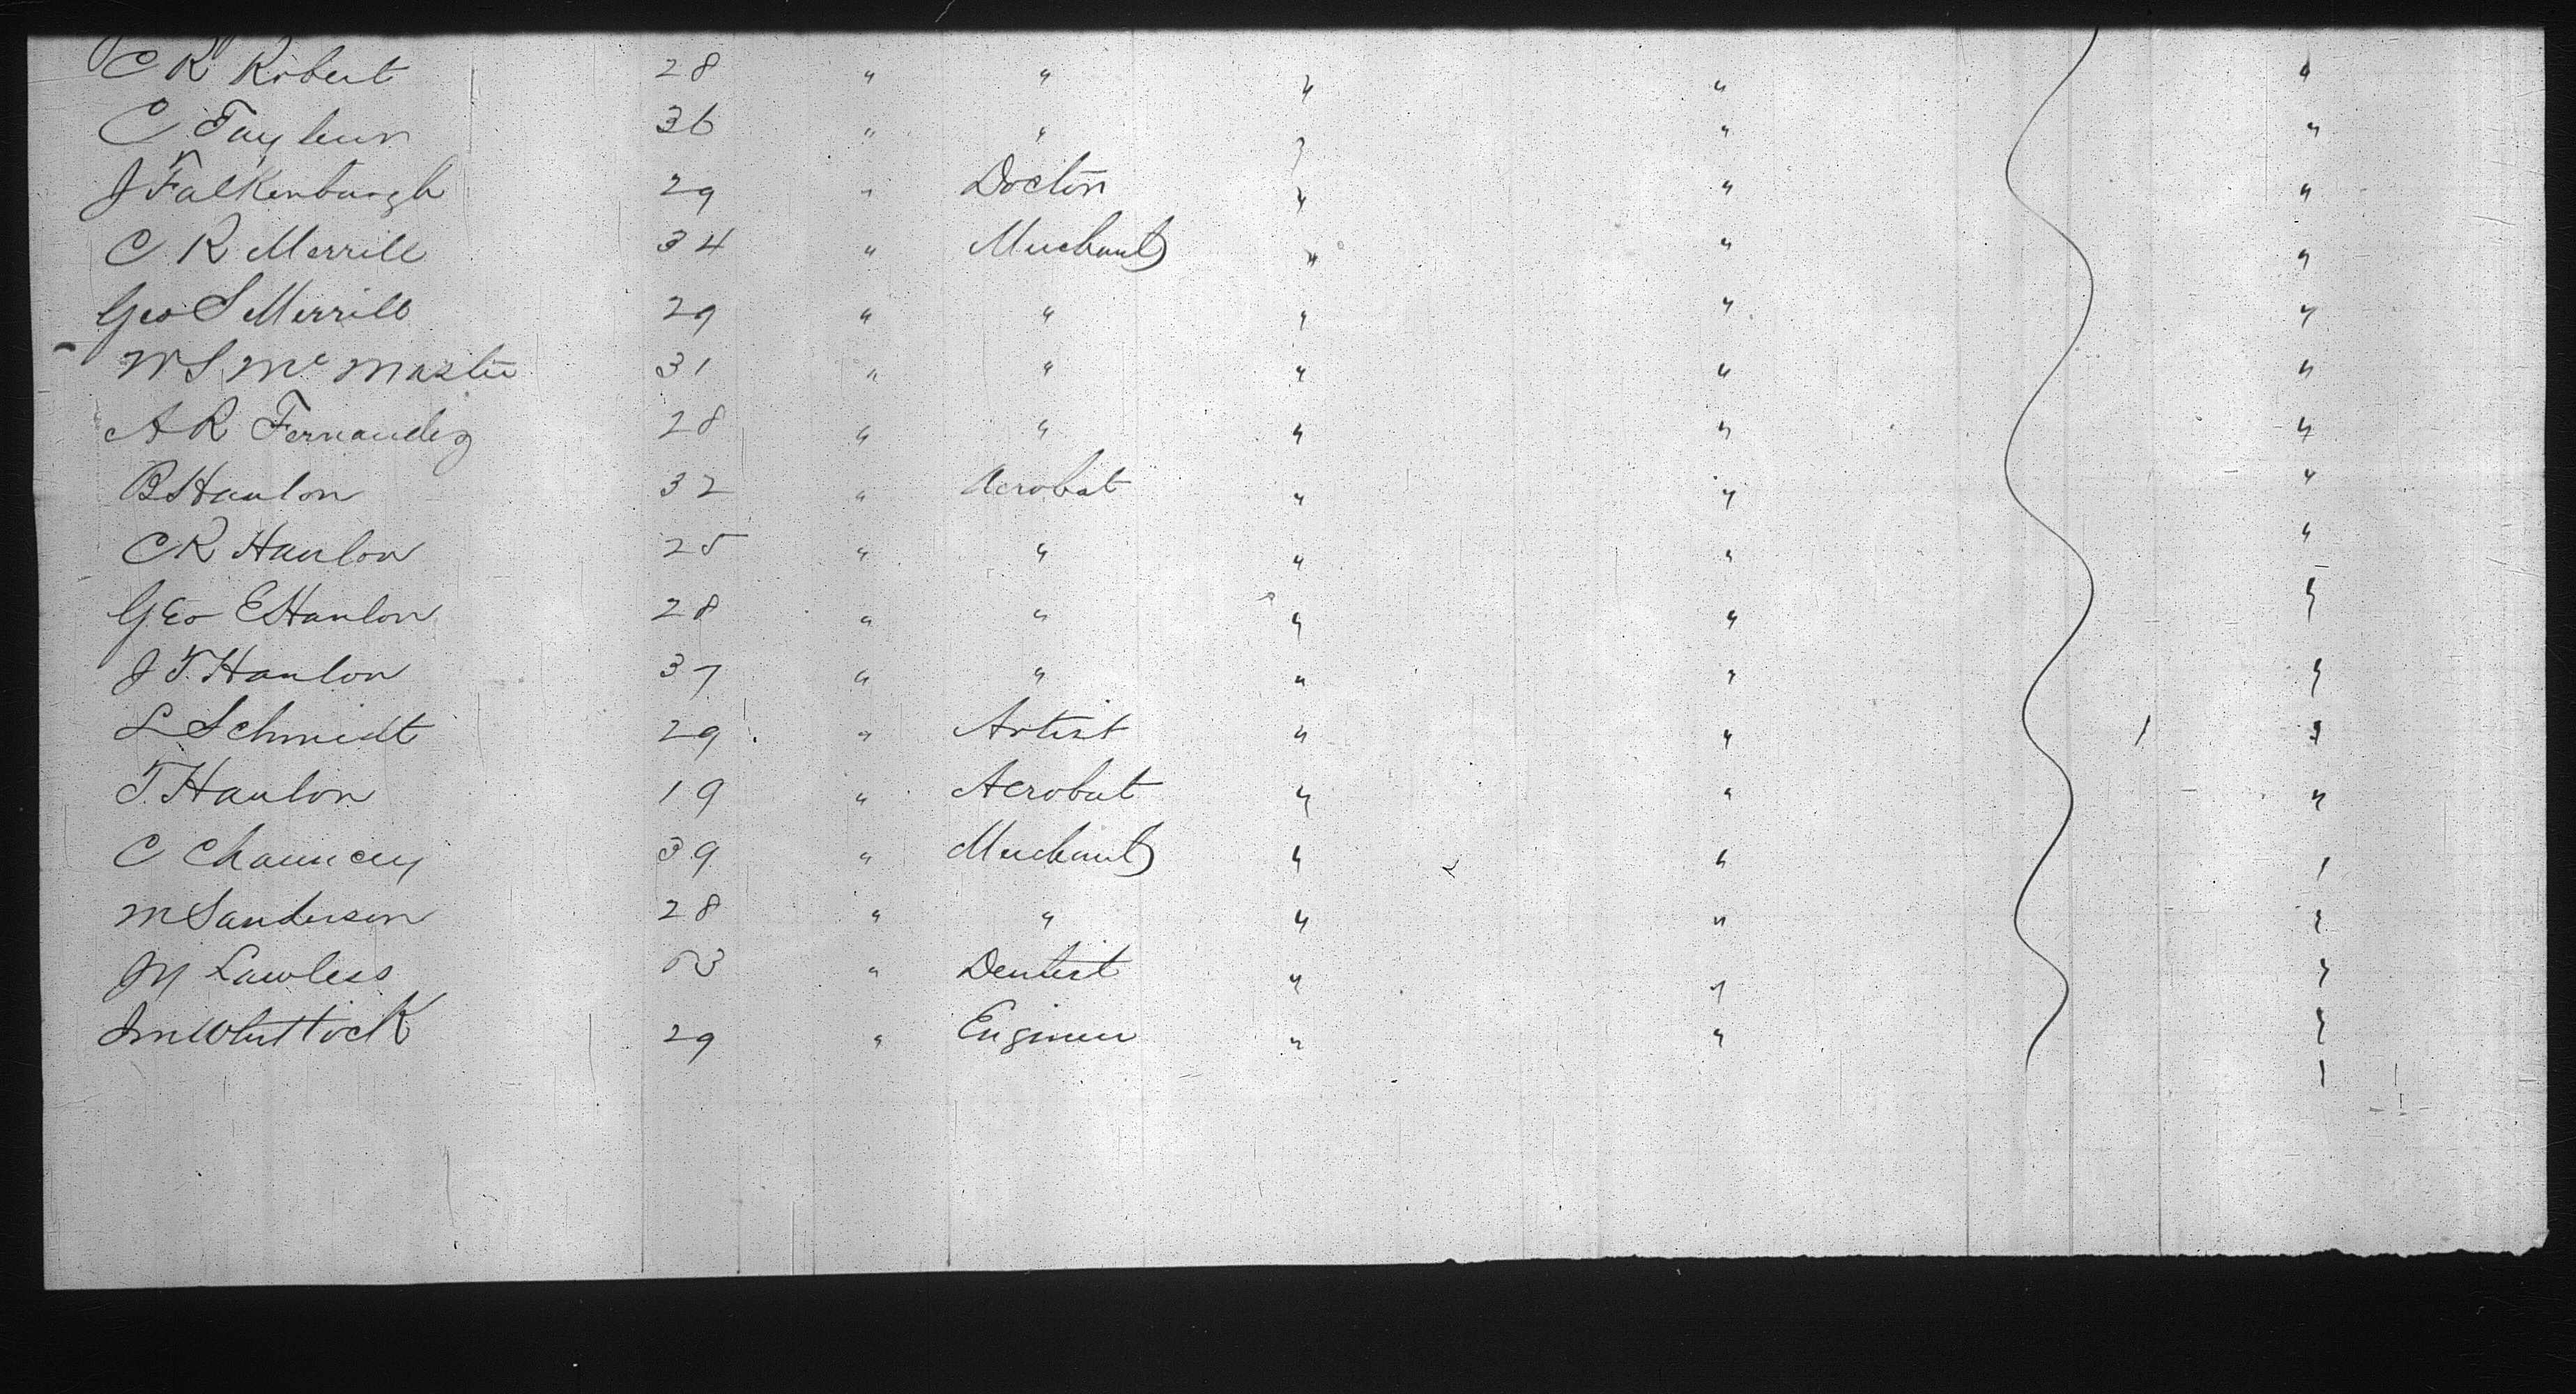 C R Robert 28 " " " " "
C Tayleur 36 " " " " "
J Falkenburgh 29 " Doctor " " "
C R Merrill 34 " Merchant " " "
Geo S Merrill 29 " " " " "
W S Mc Master 31 " " " " "
A R Fernandez 28 " " " " "
B Hanlon 32 " Acrobat " " "
C R Hanlon 25 " " " " "
Geo E Hanlon 28 " " " " "
J T. Hanlon 37 " " " " "
L Schmidt 29 " Artist " " 1 "
T. Hanlon 19 " Acrobat " " "
C Chauncey 39 " Merchant " " "
M Sanderson 28 " " " " "
Lawless " Dentist " " "
Whittock 29 " Engineer " " "